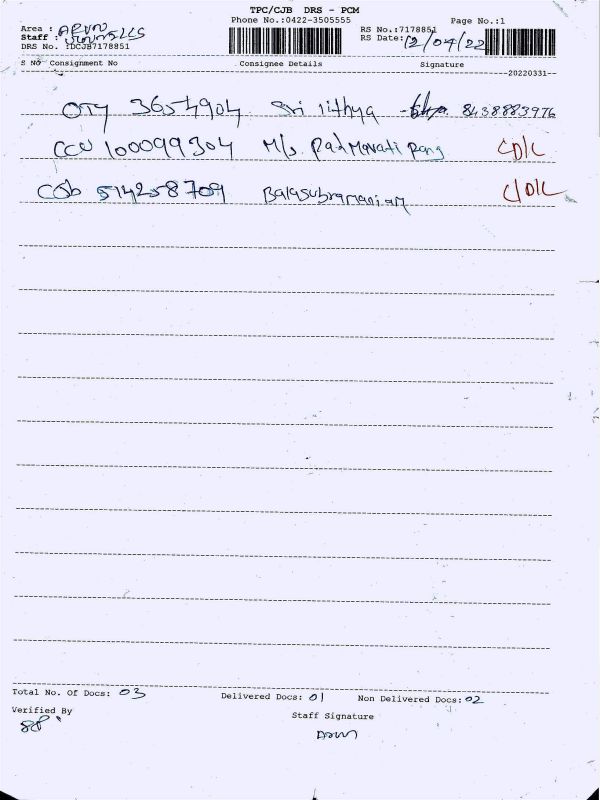 TPC/CJB DRS - PCM
Phone No.:0422-3505555 Page No.:1
Area : ARUN
Staff :
RS No.:7178851
RS Date: 12/04/22
DRS No. :DCJB7178851
S NO Consignment No Consignee Details Signature
--20220331--
OTY 36554904 Sri lithya 8438883976
CCU 100099304 M/s. Padmavati C/D/L
COb 514258709 Balasubramaniam C/D/L
Total No. Of Docs: 03 Delivered Docs: 01 Non Delivered Docs: 02
Verified By
Staff Signature
Arun